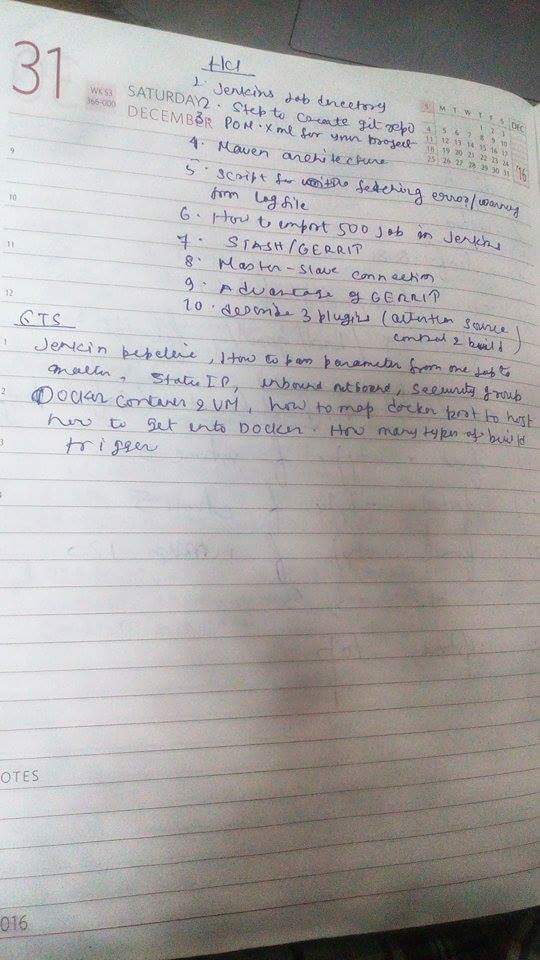 31
WK 53
366-000
SATURDAY
DECEMBER
S M T W T F S
1 2 3
4 5 6 7 8 9 10
11 12 13 14 15 16 17
18 19 20 21 22 23 24
25 26 27 28 29 30 31
DEC
'16
HCl
1. Jenkins Job directory
2. Step to create git repo
3. POM.xml for your project
4. Maven architecture
5. Script for fetching error/warning
from logfile
6. How to import 500 job in Jenkins
7. STASH/GERRIT
8. Master-slave connection
9. Advantage of GERRIT
10. describe 3 plugins ( source
control & build)
CTS
Jenkin pipeline, How to pass parameter from one job to
another, Static IP, inbound outbound, security group
Docker container & VM, how to map docker port to host
how to get into Docker. How many types of build
trigger
9
10
11
12
1
2
3
4
OTES
016